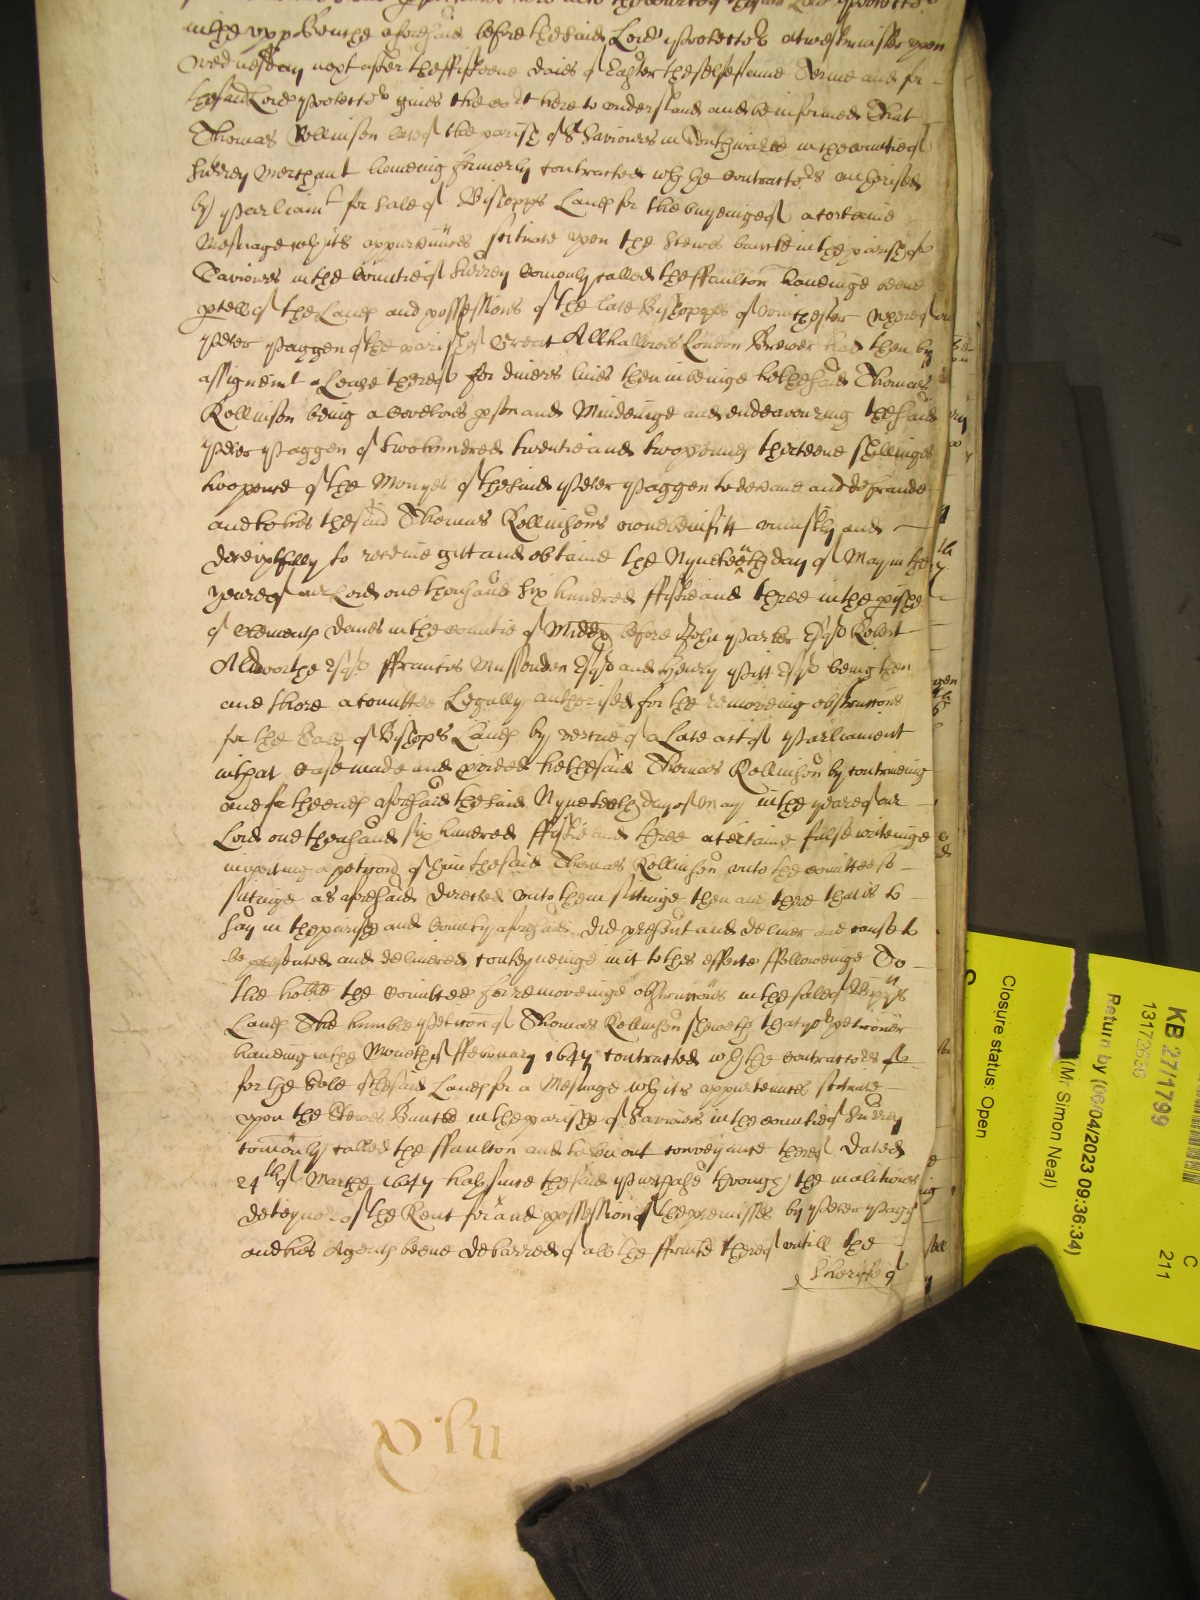 in the upp Benche aforesaid before the said Lord Protector at westminster upon
wednesday next after the fifteene daies of Easter the selfesame Terme and for
the said Lord Protector gives the Cort here to understand and be informed That
Thomas Rollinson late of the parish of St Saviours in Southwarke in the countie of
Surrey Merchant haveing formerly contracted wth the contractors authorised
by Parliamt for sale of Bishopps Lands for the buyeinge of a certaine
Messuage wth its appurtennces scituate upon the Stewes bancke in the parish of
Saviours in the Countie of Surrey Comonly called the ffaulton haveinge beene
pcell of the Lands and possessions of the late Bishopps of Winchester whereof
Peter Paggen of the parish of Great Allhallowes London Brewer had then by
assignemt a Lease thereof for divers lives then in beinge he the said Thomas
Rollinson being a Covetous pson and Mindeinge and endeavouring the said
Peter Paggen of two hundred twentie and two pounds thirteene shillings
two pence of the Monyes of the said Peter Paggen to deceive and defraude
and to his the said Thomas Rollinsons owne benifitt uniustly and
deceiptfully to receive gitt and obtaine the Nyneteenth day of May in the
yeare of our Lord one thousand six hundred ffiftie and three in the pishe
of Clements Danes in the countie of Middx before John Parker Esqr Robert
Aldworthe Esqr ffrancis Mussenden Esqr and Henry Pitt Esqr being then
and there a comittee Legally authorised for the removeing obstructions
for the Sale of Bishops Lands by vertue of a Late act of Parliament
in that case made and pvided he the said Thomas Rollinson by contriveing
and for the ends aforesaid the said Nyneteeth day of May in the yeare of our
Lord one thousand six hundred ffiftie and three a certaine false writeinge
importing a peticon of him the said Thomas Rollinson unto the comittee so
sittinge as aforesaid directed unto them sittinge then and there that is to
say in the parish and County aforesaid did present and deliver and cause to
be presented and delivered conteyneinge in it to this effecte ffolloweinge To
the hoble the Comittee for removeinge obstructions in the sale of Bpps
Lands The humble Peticon of Thomas Rollinson sheweth that yor peticoner
haveing in the Moneth of ffebruary 1647 contracted wth the contractors
for the Sale of the said Lands for a Messuage wth its appurtennces scituate
upon the Stewes Bancke in the parishe of Saviours in the countie of Surrey
comonly called the ffaulton and taken out conveyance thereof dated
24th of Marche 1647 hath since the said purchase through the malitious
deteyner of the Rent for and possession of the premisses by Peter Paggen
and his Agents beene debarred of all the ffruite thereof untill the
Sheriffe of
KB 27/1799
13172636
Return by (06/04/2023 09:36:34)
(Mr Simon Neal)
Closure status: Open
C
211